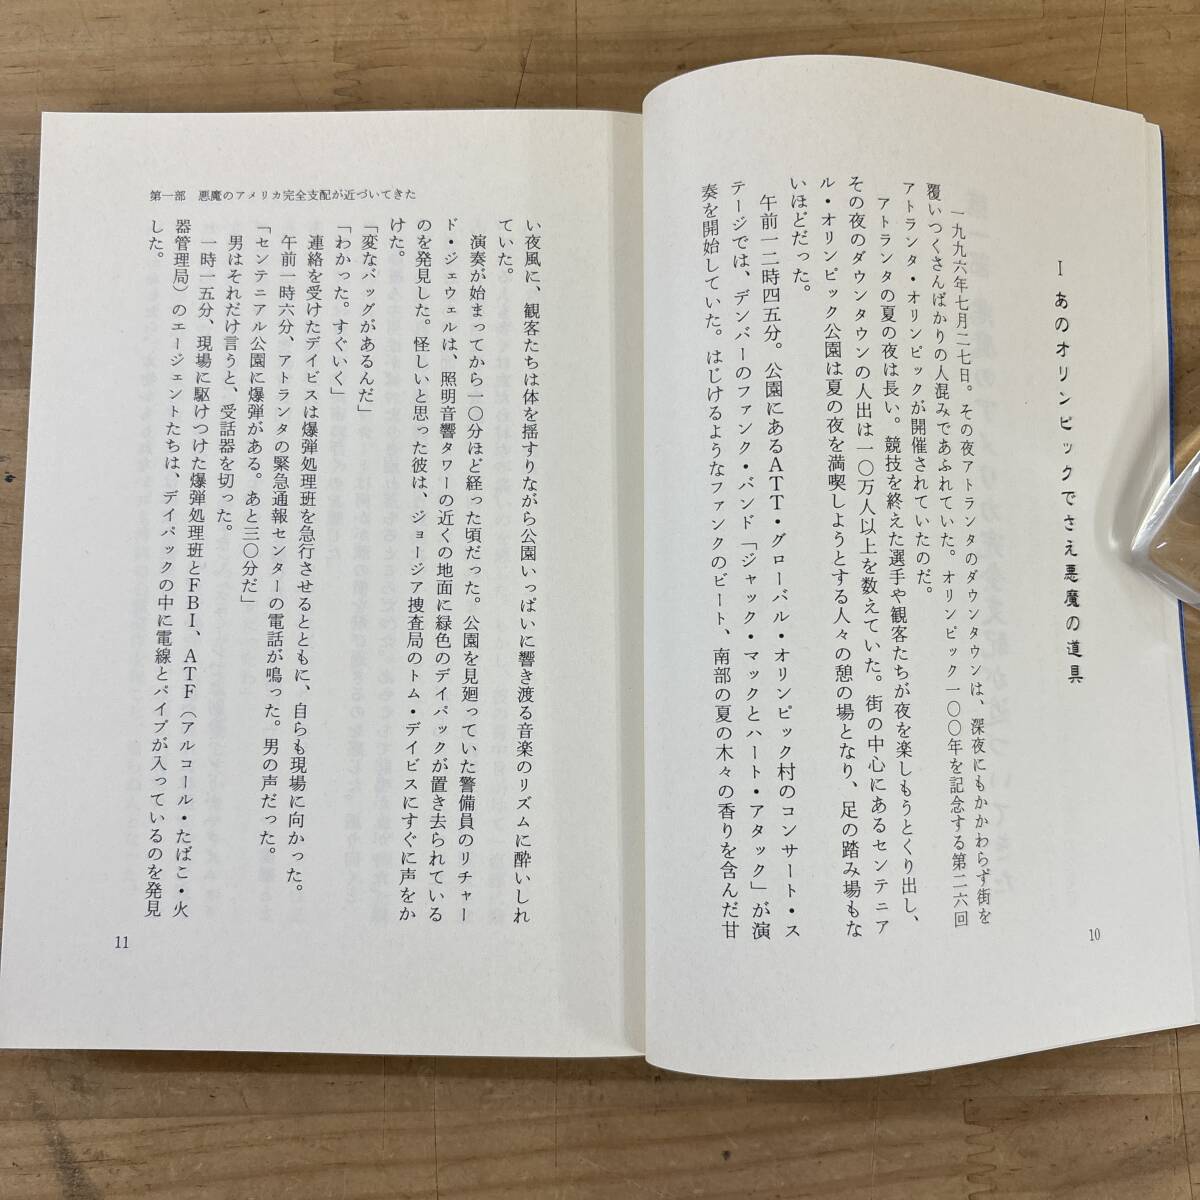 Ⅰ あのオリンピックでさえ悪魔の道具
一九九六年七月二七日。その夜アトランタのダウンタウンは、深夜にもかかわらず街を
覆いつくさんばかりの人混みであふれていた。オリンピック一〇〇年を記念する第二六回
アトランタ・オリンピックが開催されていたのだ。
アトランタの夏の夜は長い。競技を終えた選手や観客たちが夜を楽しもうとくり出し、
その夜のダウンタウンの人出は一〇万人以上を数えていた。街の中心にあるセンテニア
ル・オリンピック公園は夏の夜を満喫しようとする人々の憩の場となり、足の踏み場もな
いほどだった。
午前一二時四五分。公園にあるＡＴＴ・グローバル・オリンピック村のコンサート・ス
テージでは、デンバーのファンク・バンド「ジャック・マックとハート・アタック」が演
奏を開始していた。はじけるようなファンクのビート、南部の夏の木々の香りを含んだ甘
10
第一部 悪魔のアメリカ完全支配が近づいてきた
い夜風に、観客たちは体を揺すりながら公園いっぱいに響き渡る音楽のリズムに酔いしれ
ていた。
演奏が始まってから一〇分ほど経った頃だった。公園を見廻っていた警備員のリチャー
ド・ジェウェルは、照明音響タワーの近くの地面に緑色のデイパックが置き去られている
のを発見した。怪しいと思った彼は、ジョージア捜査局のトム・デイビスにすぐに声をか
けた。
「変なバッグがあるんだ」
「わかった。すぐいく」
連絡を受けたデイビスは爆弾処理班を急行させるとともに、自らも現場に向かった。
午前一時六分、アトランタの緊急通報センターの電話が鳴った。男の声だった。
「センテニアル公園に爆弾がある。あと三〇分だ」
男はそれだけ言うと、受話器を切った。
一時一五分、現場に駆けつけた爆弾処理班とＦＢＩ、ＡＴＦ（アルコール・たばこ・火
器管理局）のエージェントたちは、デイパックの中に電線とパイプが入っているのを発見
した。
11